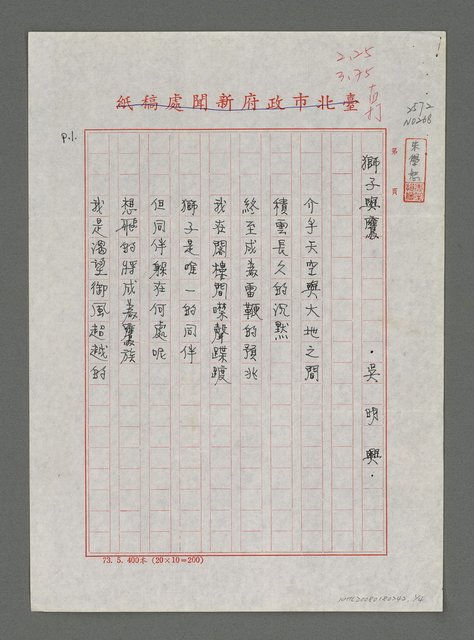 2.25
3.75
直打
2572
NO268
臺北市政府新聞處稿紙
P.1.
第 頁
朱學恕
獅子與鷹
·吳明興·
介乎天空與大地之間
積雲長久的沉默
終至成為雷鞭的預兆
我在闃樓間噤聲蹀踱
獅子是唯一的同伴
但同伴躲在何處呢
想飛的將成為鷹族
我是渴望御風超越的
73. 5. 400本 (20×10=200)
NMTL20080180242. 1/4